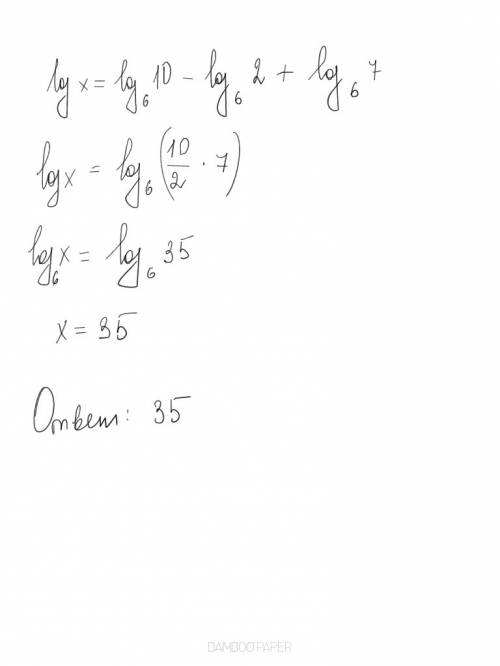 lg x = log₆ 10 - log₆ 2 + log₆ 7
log x = log₆ (10/2 · 7)
log₆ x = log₆ 35
x = 35
Ответ: 35
BAMBOOPAPER